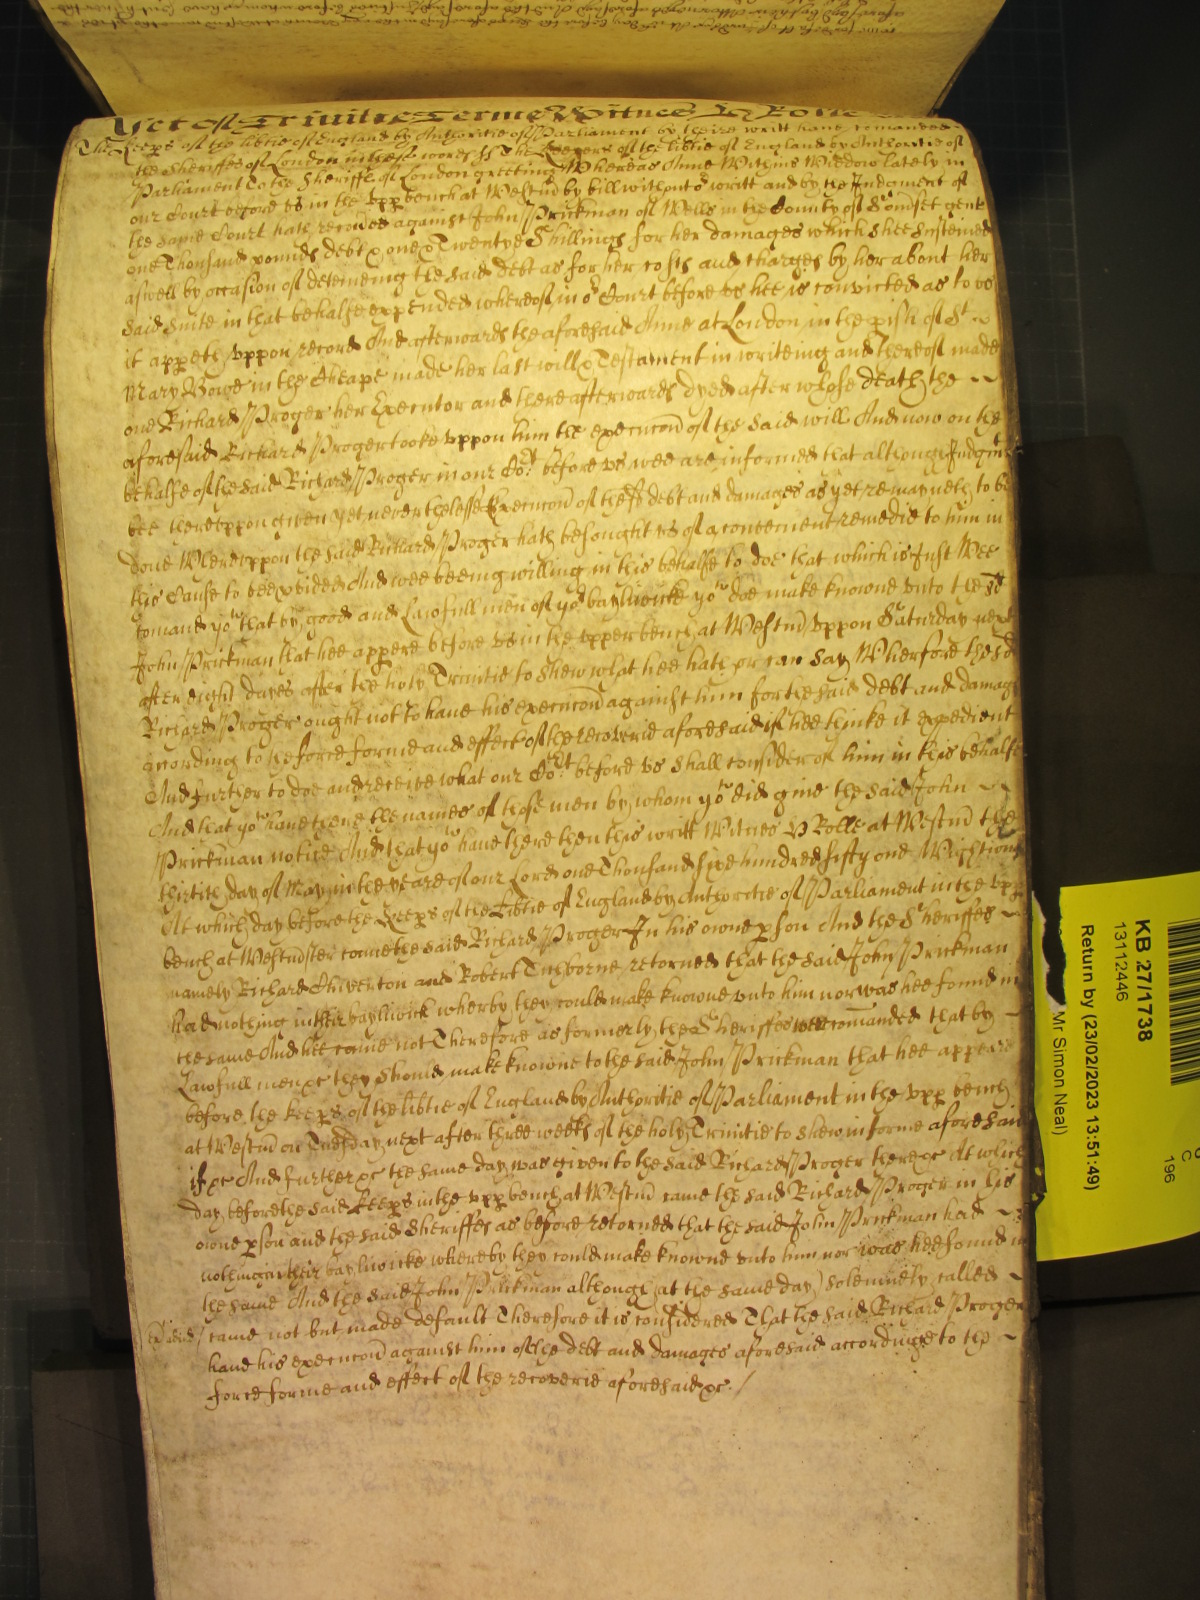 Yet of Trinitie Terme Witnes H Rolle
The Keeps of the libtie of England by Authoritie of Parliament by theire writt have comanded
the Sheriffes of London in these words ss The Keepers of the libtie of England by Authoritie of
Parliament To the Sheriffs of London greeting Whereas Anne Withins Widdow lately in
our Court before us in the upp bench at Westm by bill without or writt and by the Judgment of
the same Court hath recoved against John Prickman of Wells in the County of Somset gent
one Thousand pounds debt & one & Twentye Shillings for her damages which shee susteined
aswell by occasion of deteineing the said debt as for her costs and charges by her about her
said suite in that behalfe expended whereof in or Court before us hee is convicted as to us
it appeth uppon record And afterwards the aforesaid Anne at London in the pish of St
Mary Bowe in the Cheape made her last will & Testament in writeing and thereof made
one Richard Proger her Executor and thereafterwards dyed after whose death the
aforesaid Richard Proger tooke uppon him the execucon of the said will And now on the
behalfe of the said Richard Proger in our Cort before us wee are informed that although Judgmt
bee thereuppon given yet nevertheless Execucon of the sd debt and damages as yet remayneth to be
done Whereuppon the said Richard Proger hath besought us of a convenient remedie to him in
this Cause to bee pvided And wee beeing willing in this behalfe to doe that which is Just Wee
comand you that by good and Lawfull men of yor bayliwicke you doe make knowne unto the sd
John Prickman that hee appere before us in the upper bench at Westm uppon Saturday next
after eight dayes after the holy Trinitie to shew what hee hath or can say Wherfore the sd
Richard Proger ought not to have his execucon against him for the said debt and damag
according to the force forme and effect of the recoverie aforesaid if hee thinke it expedient
And further to doe and receive what our Cort before us shall consider of him in this behalfe
And that you have there the names of those men by whom you did give the said John
Prickman notice And that you have there then this writt Witnes H Rolle at Westm the
thirtith day of May in the yeare of our Lord one Thousand six hundred fifty one Wightwick
At which day before the Keeps of the libtie of England by Authoritie of Parliament in the upp
bench at Westmster came the said Richard Proger In his owne pson And the Sheriffes
namely Richard Chiverton and Robert Tichborne retorned that the said John Prickman
had nothing in their bayliwick wherby they could make knowne unto him nor was hee found in
the same And hee came not Therefore as formerly the Sheriffes were comanded that by
Lawfull men &c they should make knowne to the said John Prickman that hee appeare
before the Keeps of the libtie of England by Authoritie of Parliament in the upp bench
at Westm on Tuesday next after three weeks of the holy Trinitie to shew in forme aforesaid
if &c And further &c the same day was given to the said Richard Proger there &c At which
day before the said Keeps in the upp bench at Westm came the said Richard Proger in his
owne pson and the said Sheriffes as before retorned that the said John Prickman had
nothing in their bayliwicke whereby they could make knowne unto him nor was hee found in
the same And the said John Prickman although at the same day solemnely called
came not but made default Therefore it is considered That the said Richard Proger
have his execucon against him of the debt and damages aforesaid accordinge to the
force forme and effect of the recoverie aforesaid &c./
KB 27/1738
13112446
Return by (23/02/2023 13:51:49)
Mr Simon Neal)
C
196